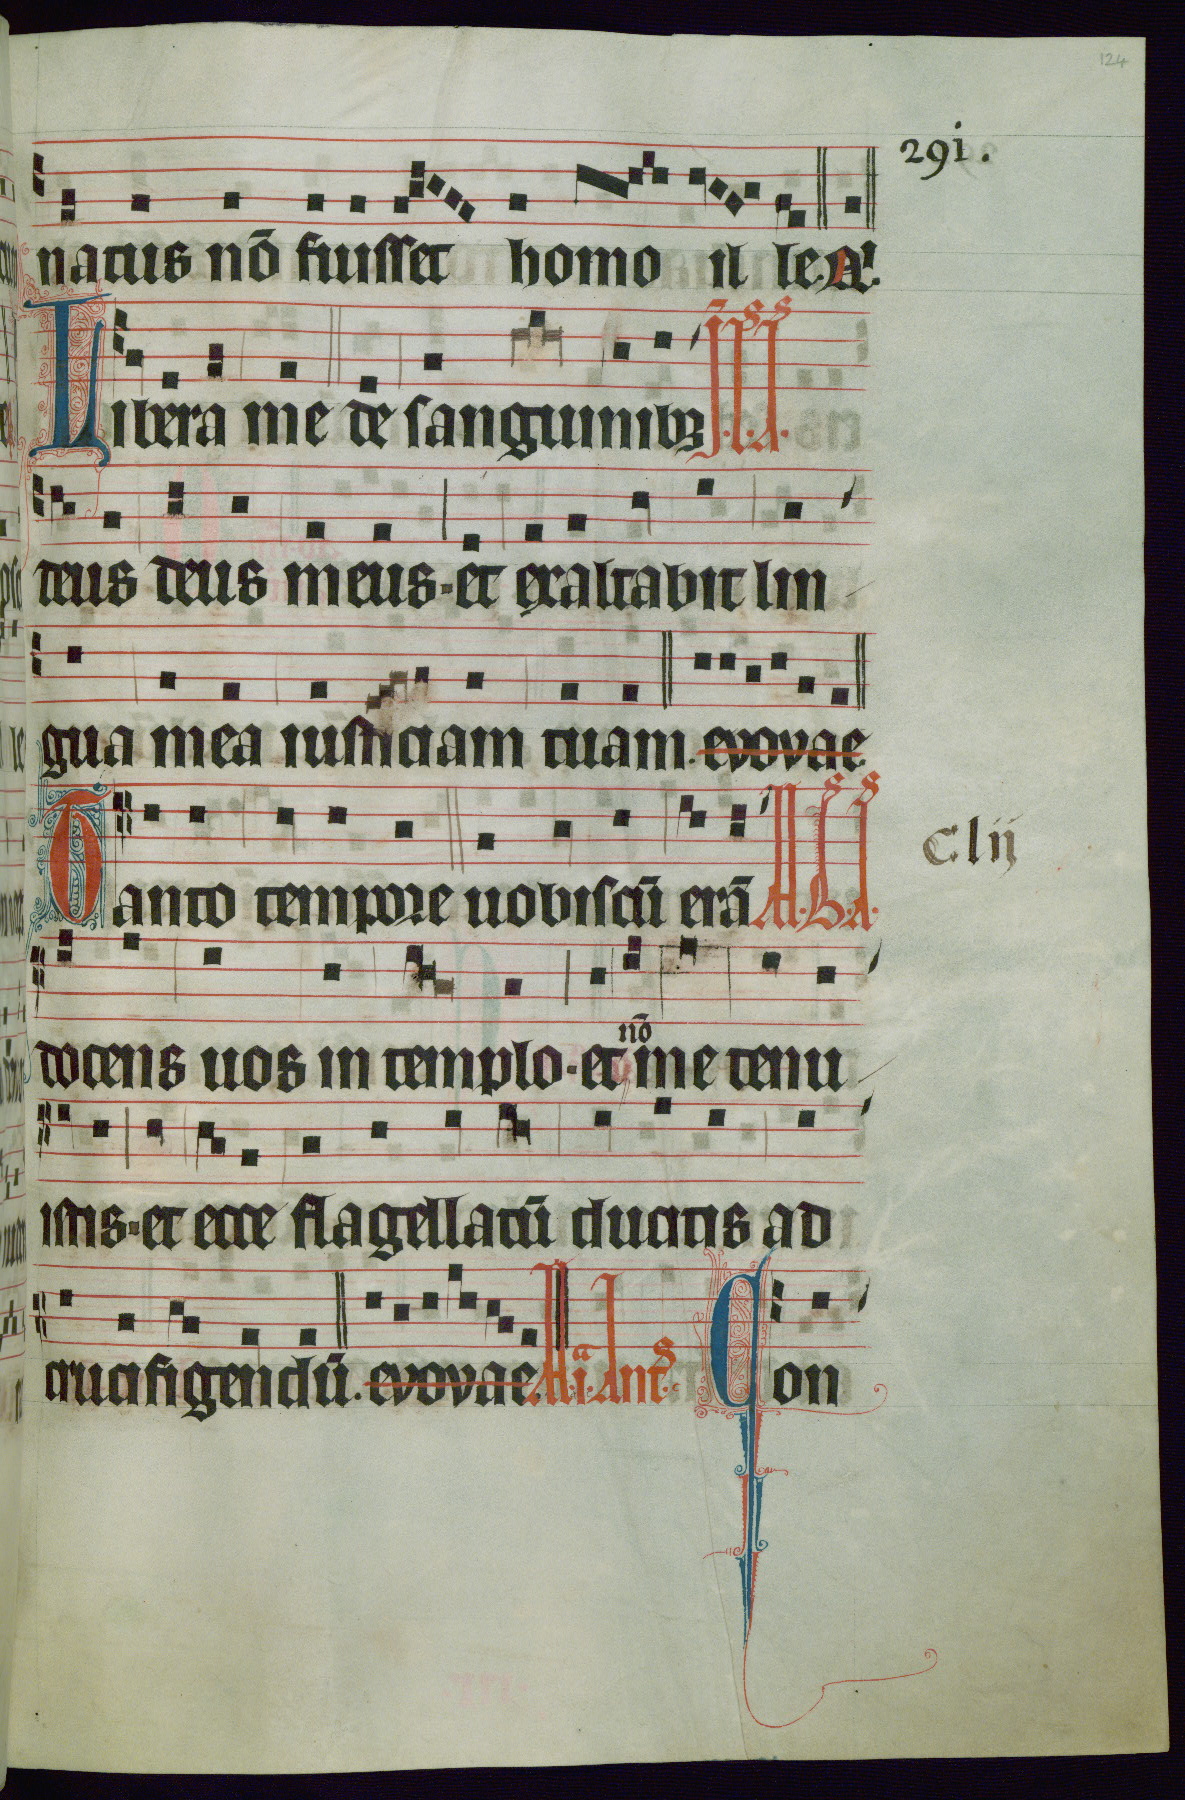 124
291.
natus nō fuisset homo il le.
Libera me de sanguinibꝫ
deus deus meus·et exaltabit lin
gua mea iusticiam tuam. evovae
Tanto tempore uobiscū erā
docens uos in templo·et nō me tenu
istis·et ecce flagellatū ducitis ad
crucifigendū. evovae. Ant. Con
C.lij